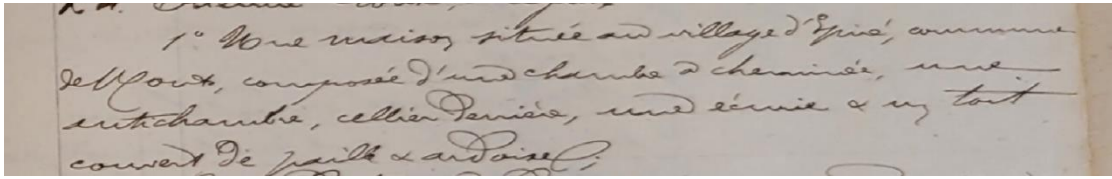 1° Une maison située au village d'Epiré, commune
de Mont, composée d'une chambre à cheminée, une
antichambre, cellier derrière, une écurie & un toit
couvert de paille & ardoises;